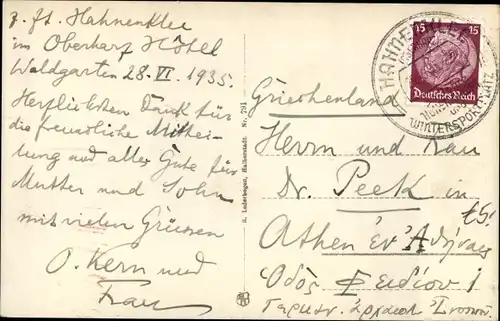 z. Zt. Hahnenklee
im Oberharz Hôtel
Waldgarten 28. VI. 1935.
Herzlichsten Dank für
die freundliche Mittei-
lung und alles Gute für
Mutter und Sohn
mit vielen Grüssen
O. Kern und
Frau
R. Lederbogen, Halberstadt. Nr. 791
HAHNENKLEE
WINTERSPORTPLATZ
15 15
Deutsches Reich
Griechenland
Herrn und Frau
Dr. Peek in
Athen ἐν Ἀθήναις
Ὁδὸς Φειδίου 1